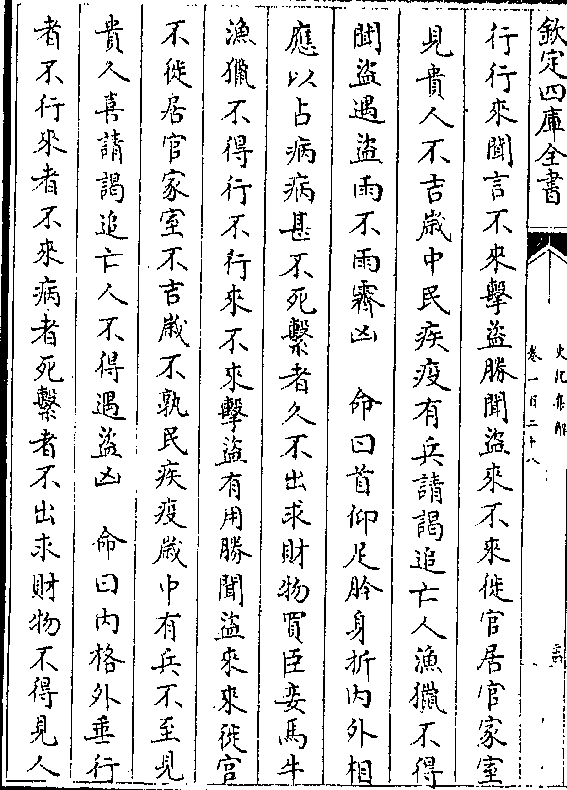 欽定四庫全書
史記集解
卷一百二十八
行行來聞言不來擊盜勝聞盜來不來徙官居官家室
見貴人不吉嵗中民疾疫有兵請謁追亡人漁獵不得
聞盜遇盜雨不雨霽凶　命曰首仰足肣身折内外相
應以占病病甚不死繫者久不出求財物買臣妾馬牛
漁獵不得行不行來不來擊盜有用勝聞盜來來徙官
不徙居官家室不吉嵗不孰民疾疫嵗中有兵不至見
貴人喜請謁追亡人不得遇盜凶　命曰内格外垂行
者不行來者不來病者死繫者不出求財物不得見人